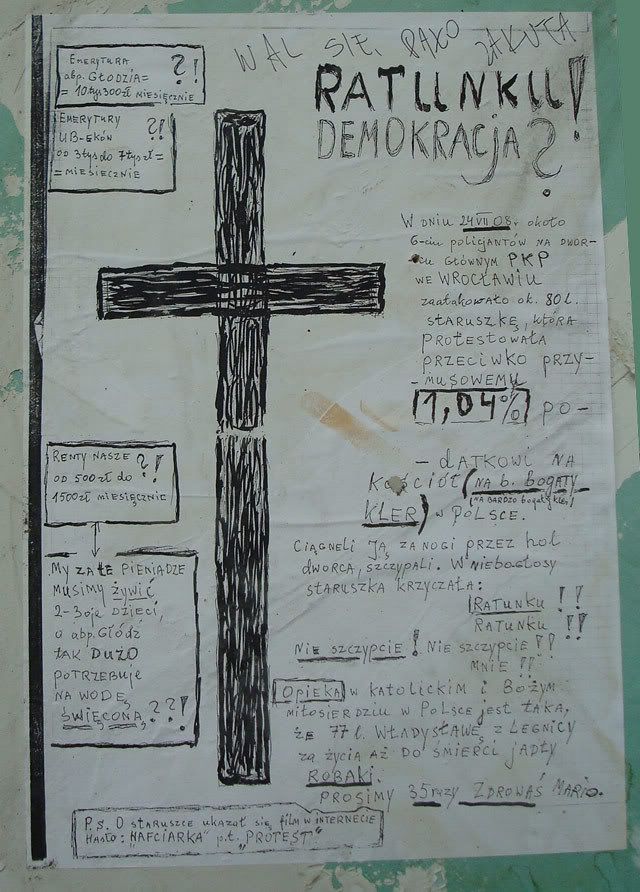 WAL SIĘ, PAŁO ZAKUTA
RATUNKU!
DEMOKRACJA?
EMERYTURA ?!
abp. GŁODZIA=
= 10tys300zł MIESIĘCZNIE
EMERYTURY
UB-EKÓW ?!
OD 3tys do 7tyszł=
= MIESIĘCZNIE
W DNIU 24 VII 08r około
6-ciu policjantów NA DWOR-
cu GŁÓWNYM PKP
WE WROCŁAWIU
zaatakowało ok. 80 l.
STARUSZKĘ, KTÓRA
PROTESTOWAŁA
PRZECIWKO PRZY-
-MUSOWEMU
1,04% PO-
- DATKOWI NA
Kościół (NA b. BOGATY
(NA BARDZO bogaty kler)
KLER) W POLSCE.
CIĄGNELI JĄ ZA NOGI PRZEZ hol
DWORCA, SZCZYPALI. W NIEBOGŁOSY
STARUSZKA KRZYCZAŁA:
RATUNKU!!
RATUNKU!!
NIE SZCZYPCIE! NIE SZCZYPCIE!!
MNIE!!
OPIEKA W KATOLICKIM i BOŻYM
MIŁOSIERDZIU W POLSCE JEST TAKA,
ŻE 77 l. WŁADYSŁAWĘ Z LEGNICY
za życia AŻ DO ŚMIERCI JADŁY
ROBAKI.
PROSIMY 35 razy ZDROWAŚ MARIO.
RENTY NASZE ?!
OD 500zł do
1500zł MIESIĘCZNIE
MY ZA TE PIENIĄDZE
MUSIMY ŻYWIĆ
2-3oje DZIECI,
a abp. GŁÓDŹ
TAK DUŻO
POTRZEBUJE
NA WODĘ
ŚWIĘCONĄ, ??!
P.S. O STARUSZCE UKAZAŁ SIĘ FILM W INTERNECIE
HASŁO: „HAFCIARKA" p.t. „PROTEST"